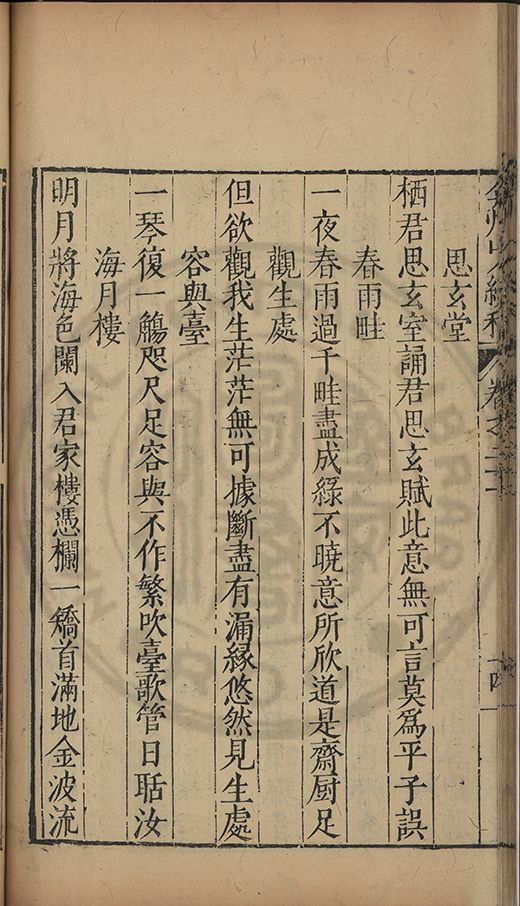 思玄堂
栖君思玄室誦君思玄賦此意無可言莫爲平子誤
春雨畦
一夜春雨過千畦盡成綠不曉意所欣道是齋厨足
觀生處
但欲觀我生茫茫無可據斷盡有漏緣悠然見生處
容與臺
一琴復一觴咫尺足容與不作繁吹臺歌管日聒汝
海月樓
明月將海色闌入君家樓憑欄一矯首滿地金波流